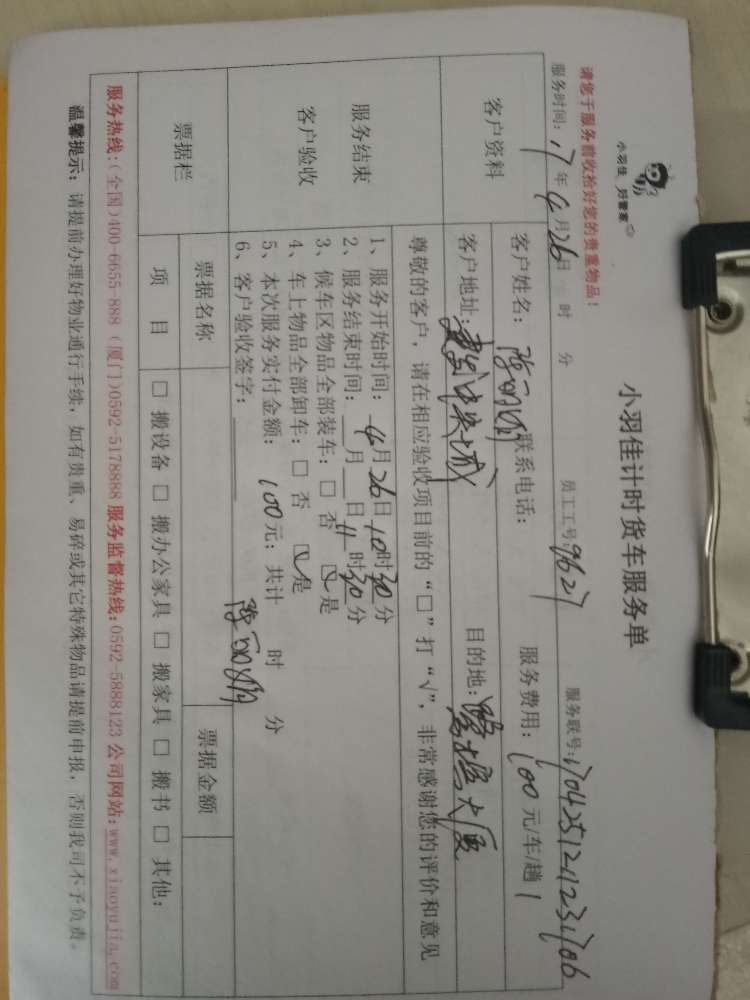 小羽佳 好管家
小羽佳计时货车服务单
请您于服务前收拾好您的贵重物品！
服务时间：17年4月26日 时 分 员工工号：9627 服务联号：
客户资料
客户姓名： 联系电话： 服务费用：100元/车/趟
客户地址： 中央城 目的地： 大厦
尊敬的客户，请在相应验收项目前的“□”打“√”，非常感谢您的评价和意见
服务结束
客户验收
1、服务开始时间：4月26日10时30分
2、服务结束时间：__月__日11时30分
3、候车区物品全部装车：□ 否 ☑是
4、车上物品全部卸车：□ 否 ☑是
5、本次服务实付金额：100元；共计 时 分
6、客户验收签字：
票据栏 票据名称 票据金额
项 目 □ 搬设备 □ 搬办公家具 □ 搬家具 □ 搬书 □ 其他：
服务热线：(全国)400-6655-888 (厦门)0592-5178888 服务监督热线：0592-5888123 公司网站：www.xiaoyujia.com
温馨提示：请提前办理好物业通行手续，如有贵重、易碎或其它特殊物品请提前申报，否则我司不予负责。